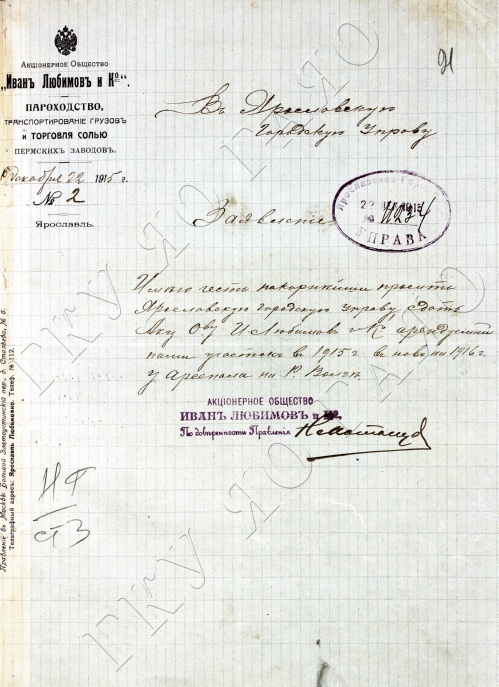 91
Акціонерное Общество
„Иванъ Любимовъ и Ко".
Пароходство,
транспортированіе грузовъ
и торговля солью
Пермскихъ заводовъ.
Декабря 22 1915 г.
№ 2
Ярославль.
Въ Ярославскую
Городскую Управу
Ярославская Гор
1915
УПРАВА
Заявленіе
Имѣю честь покорнѣйше просить
Ярославскую городскую управу сдать
Акц Ову И Любимов и К арендуемый
нами участок в 1915 г. в на 1916 г.
у Арсенала на Р. Волгѣ
АКЦІОНЕРНОЕ ОБЩЕСТВО
ИВАНЪ ЛЮБИМОВЪ и Ко.
По довѣренности Правленія
НФ
ст 3
Правленіе въ Москвѣ: Большой Златоустинскій пер., д. № 6.
Телеграфный адресъ: Ярославль Любимовко. Телеф. № 112.
ГКУ ЯО ГАЯО